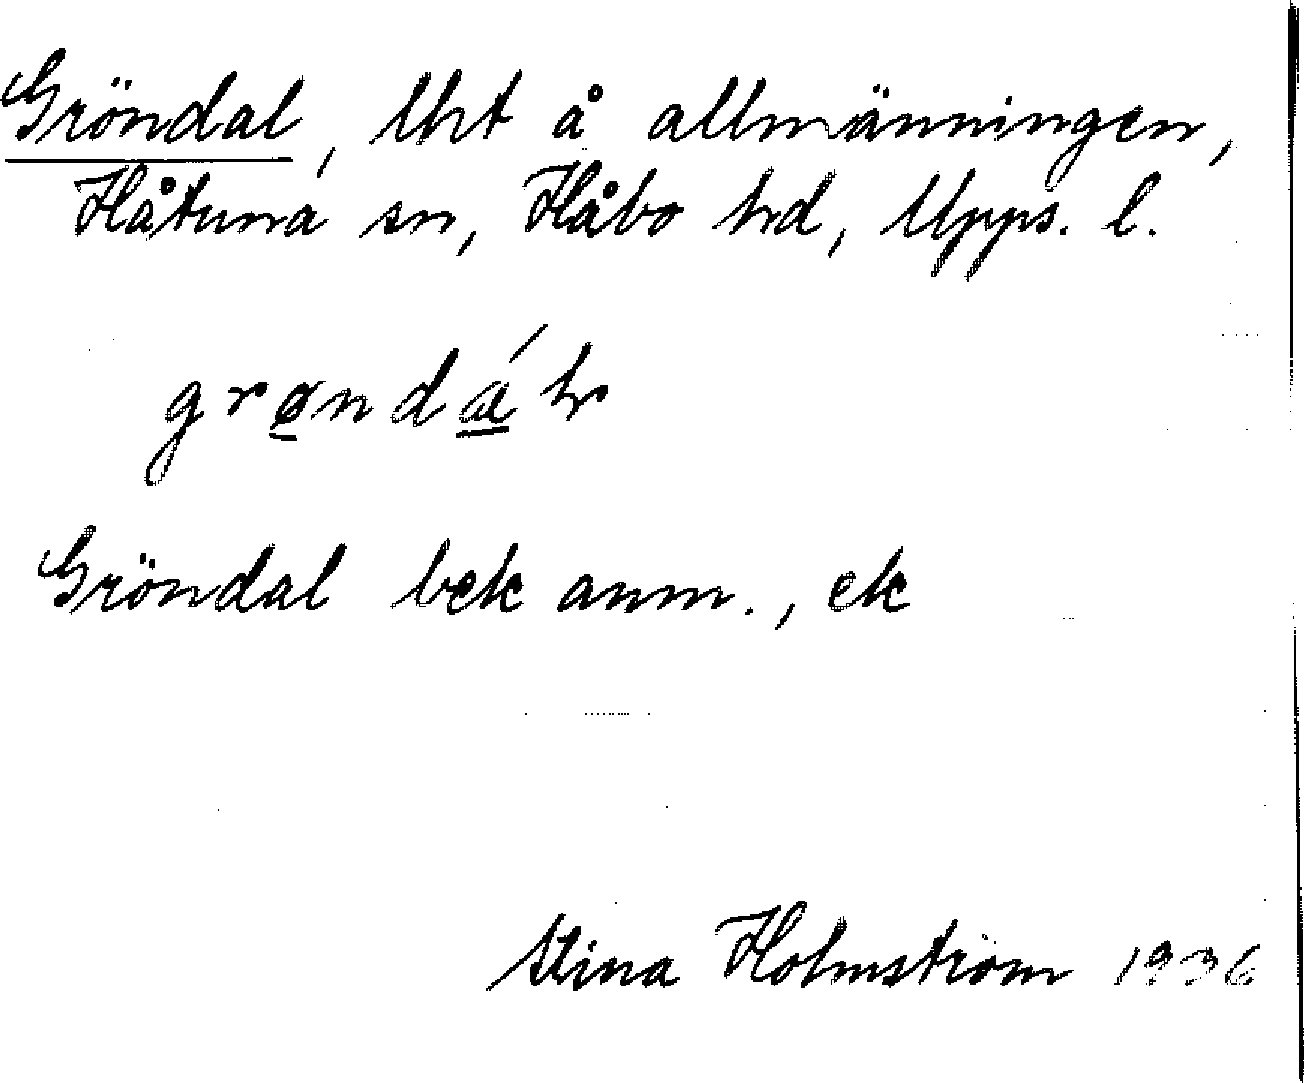 Gröndal, lht å allmänningen,
Håtuna sn, Håbo hd, Upps. l.
Gröndal bek anm., ek
Stina Holmström 1936